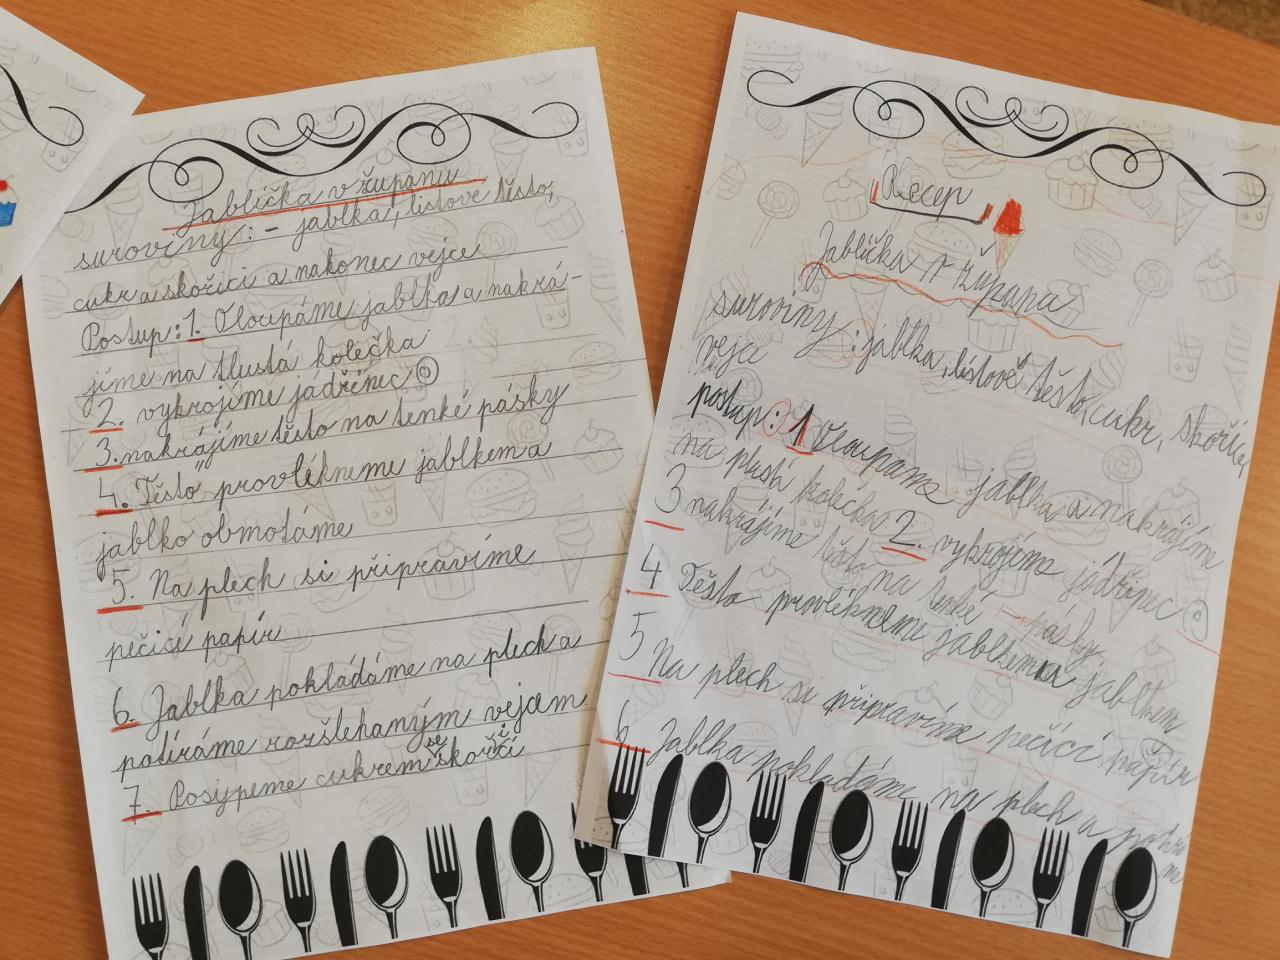 Jablíčka v županu
suroviny: - jablka, listové těsto,
cukr a skořici a nakonec vejce
Postup: 1. Oloupáme jablka a nakrá-
jíme na tlustá kolečka
2. vykrojíme jadřinec
3. nakrájíme těsto na tenké pásky
4. Těsto provlékneme jablkem a
jablko obmotáme
5. Na plech si připravíme
pečící papír
6. Jablka pokládáme na plech a
potíráme rozšlehaným vejcem.
7. Posypeme cukrem se skořicí
Recep
Jablíčka v županu
suroviny: jablka, listové těsto, cukr, skořice,
vejce
postup: 1 Oloupame jablka a nakrájíme
na plustá kolečka 2. vykrojíme jádřinec
3 nakrájíme těsto na tenké pásky
4 Těsto provlékneme jablkem
5 Na plech si připravíme pečící papír
6 Jablka pokladáme na plech a